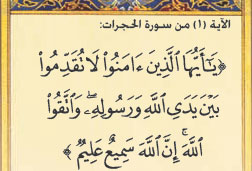 الآية (١) من سورة الحجرات:
﴿يَـٰٓأَيُّهَا ٱلَّذِينَ ءَامَنُوا۟ لَا تُقَدِّمُوا۟
بَيْنَ يَدَىِ ٱللَّهِ وَرَسُولِهِۦ ۖ وَٱتَّقُوا۟
ٱللَّهَ ۚ إِنَّ ٱللَّهَ سَمِيعٌ عَلِيمٌ﴾